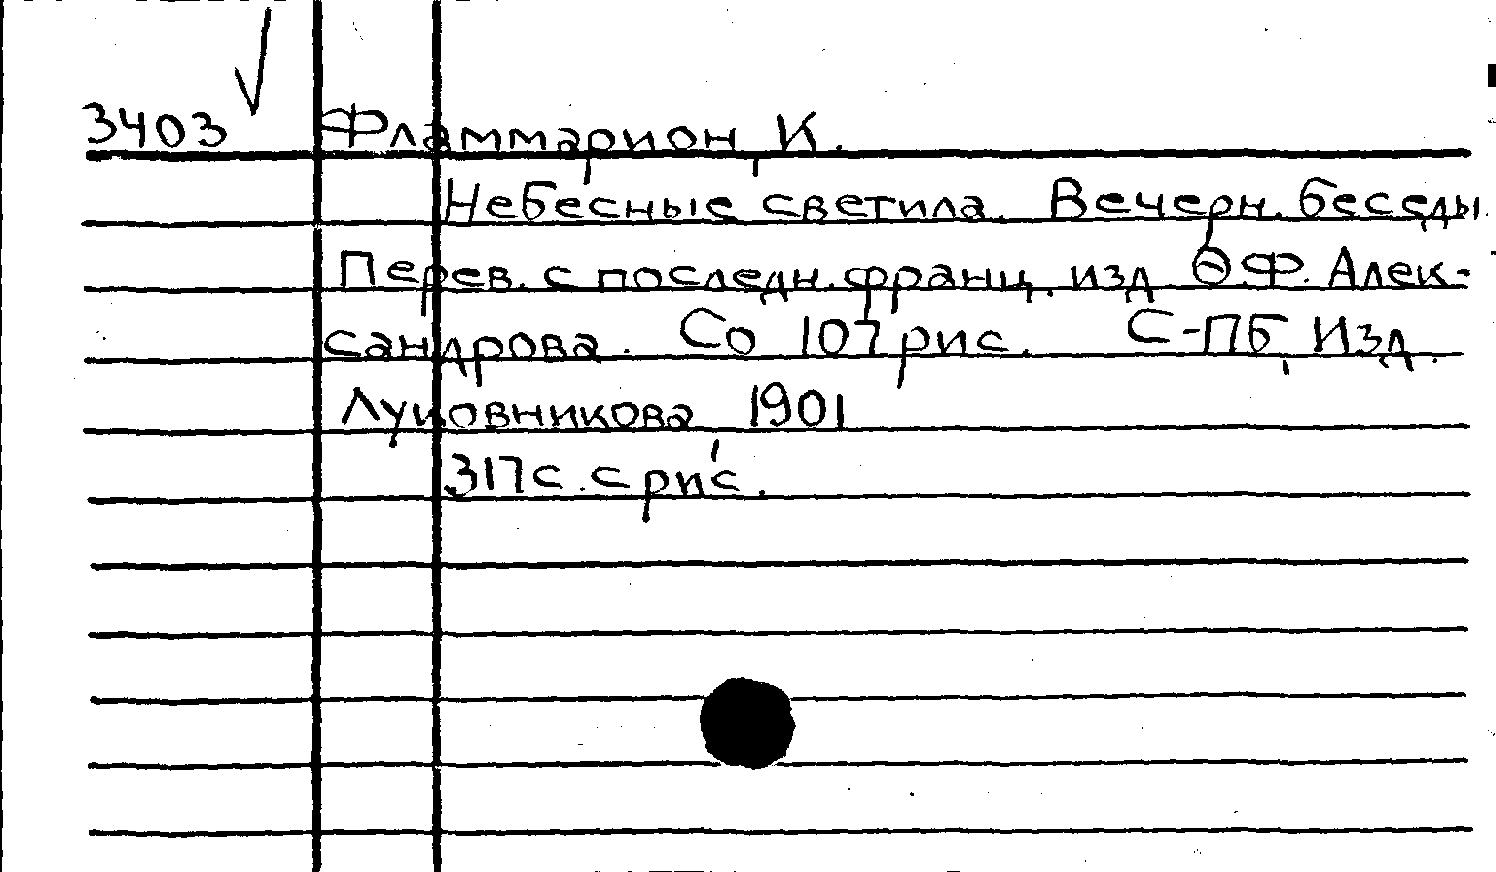 3403 Фламмарион, К.
Небесные светила. Вечерн. беседы.
Перев. с последн. франц. изд Ѳ.Ф. Алек-
сандрова. Со 107 рис. С-ПБ, Изд.
Луковникова, 1901
317с. с рис.